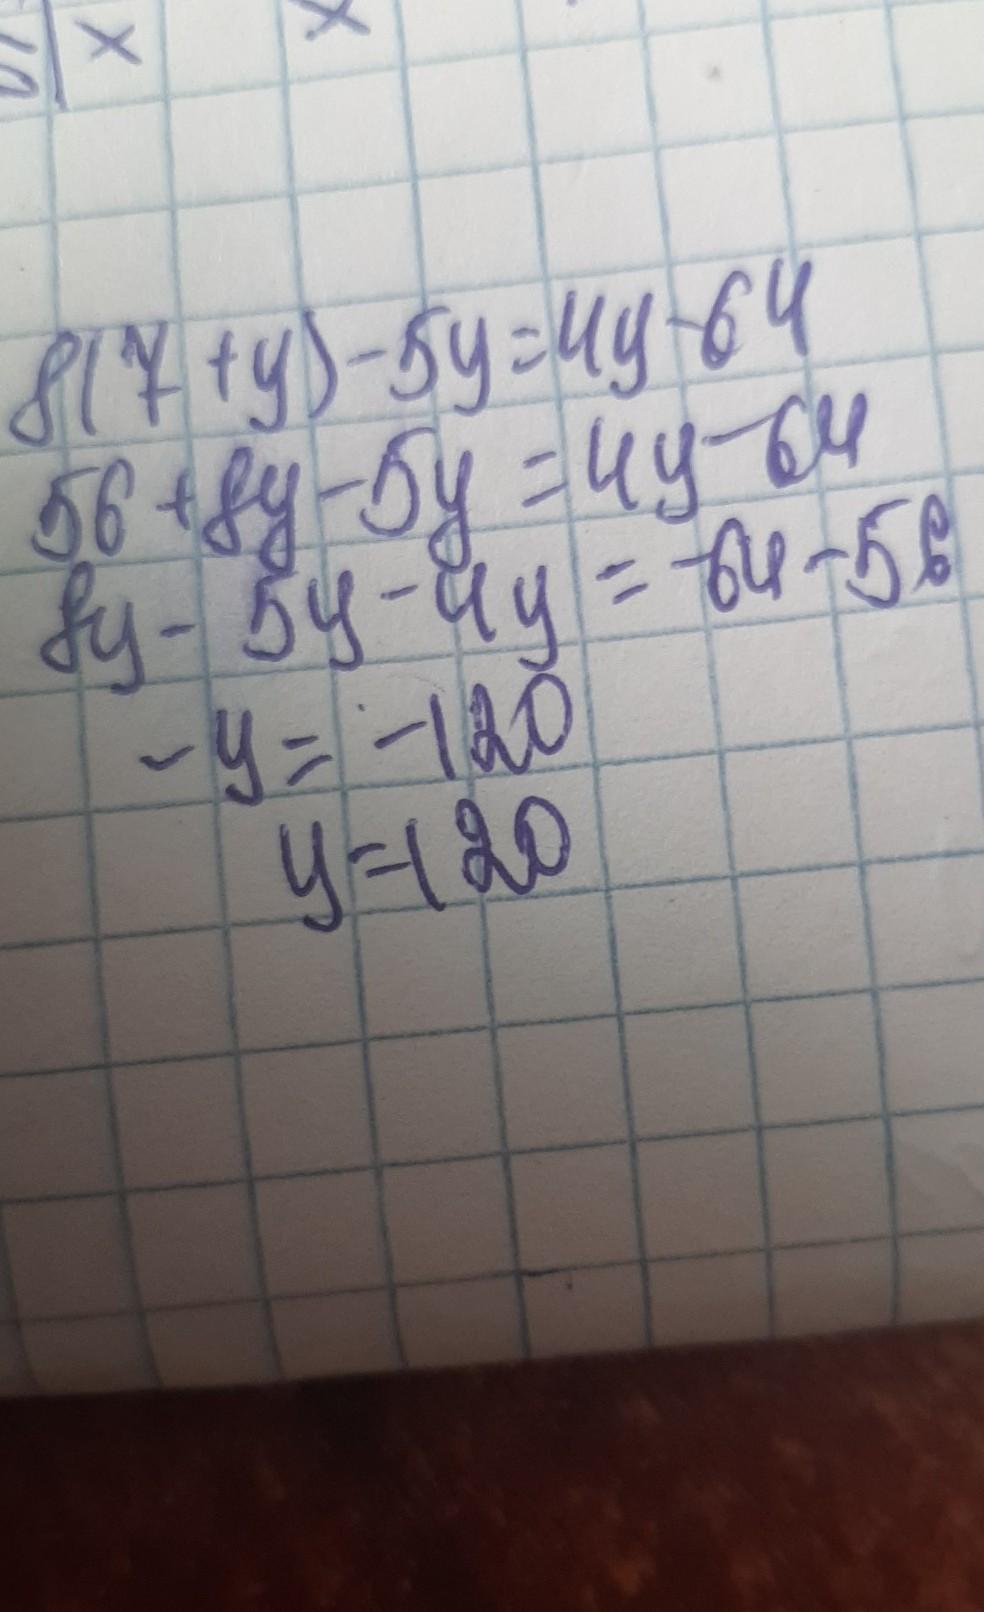 x x
8(7+y)-5y=4y-64
56+8y-5y=4y-64
8y-5y-4y=-64-56
-y=-120
y=120